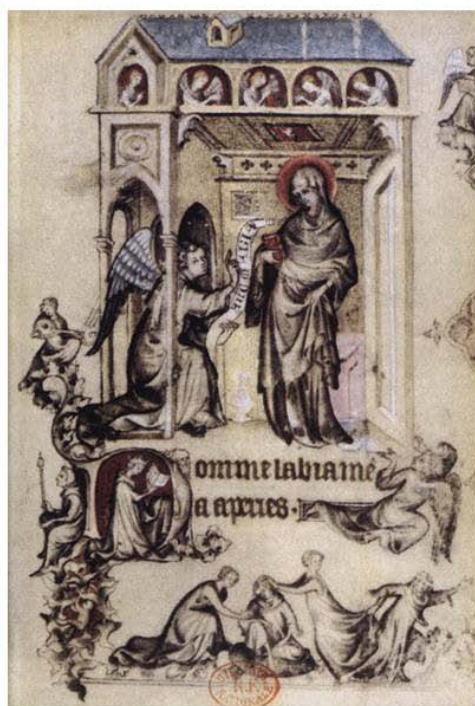 Domine labia me
a apries.